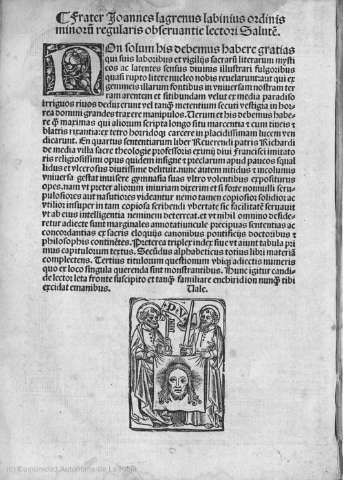 ¶ Frater Joannes lagrenus labinius ordinis
minorũ regularis obseruantie lectori Salutẽ.
NOn solum his debemus habere gratias
qui suis laboribus et vigilijs sacrarũ literarum mysti
cos ac latentes sensus diuinis illustrari fulgoribus
quasi rupto litere nucleo nobis reuelarunt: aut qui ex
gemineis illarum fontibus in vniuersam nostram ter
ram arentem et sitibundam velut ex media paradisi
irriguos riuos deduxerunt vel tanq̃ metentium secuti vestigia in hor
rea domini grandes traxere manipulos. Uerum et his debemus habe
re q̃ maximas qui aliorum scripta longo situ marcentia et cum tineis et
blattis rixantia: ex tetro horridoq; carcere in placidissimam lucem ven
dicarunt. En quartus sententiarum liber Reuerendi patris Richardi
de media villa sacre theologie professoris eximij diui francisci imitato
ris religiosissimi opus quidem insigne et preclarum apud paucos squal
lidus et vlcerosus diutissime delituit. nunc autem nitidus
vniuersa gestat inuisere gymnasia suas vltro volentibus expositurus
opes. nam vt preter aliorum iniuriam dixerim et si forte nonnulli scru
pulosiores aut nasutiores videantur nemo tamen copiosior solidior ac
vtilior insuper in tam copiosa scribendi vbertate sic facilitate seruauit
vt ab eius intelligentia neminem deterreat. et vt nihil omnino deside
retur adiecte sunt marginales annotatiuncule precipuas sententias ac
concordantias ex sacris eloquijs canonibus pontificijs doctoribus et
philosophis continẽtes. Preterea triplex index siue vt aiunt tabula pri
mus capitulorum textus. Secũdus alphabeticus totius libri materiã
complectens. Tertius titulorum questionum vbiq; adiectis numeris
quo ex loco singula querenda sint monstrantibus. Hunc igitur candi
de lector leta fronte suscipito et tanq̃ familiare enchiridion nunq̃ tibi
excidat e manibus. Uale.
(c) Comunidad Autónoma de La Rioja